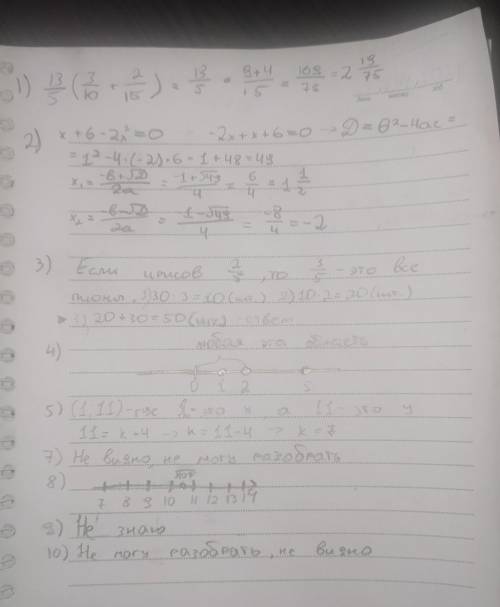 1) 13/5 (3/10 + 2/15) = 13/5 * 9+4/15 = 169/75 = 2 19/75
2) x + 6 - 2x² = 0 -2x + x + 6 = 0 → D = b² - 4ac =
= 1² - 4 · (-2) · 6 = 1 + 48 = 49
x₁ = -b+√D/2a = -1+√49/4 = 6/4 = 1 1/2
x₂ = -b-√D/2a = -1-√49/4 = -8/4 = -2
3) Если ирисов 2/5, то 3/5 - это все
пионы, 1) 30 : 3 = 10 (шт.) 2) 10 · 2 = 20 (шт.)
3) 20 + 30 = 50 (шт) - ответ
любая эта область
4)
0 1 2 5
5) (1, 11) - где 1 - это x, а 11 - это y
11 = k + 4 → k = 11 - 4 → k = 7
7) Не видно, не могу разобрать
8)
7 8 9 10 11 12 13 14
9) Не знаю
10) Не могу разобрать, не видно